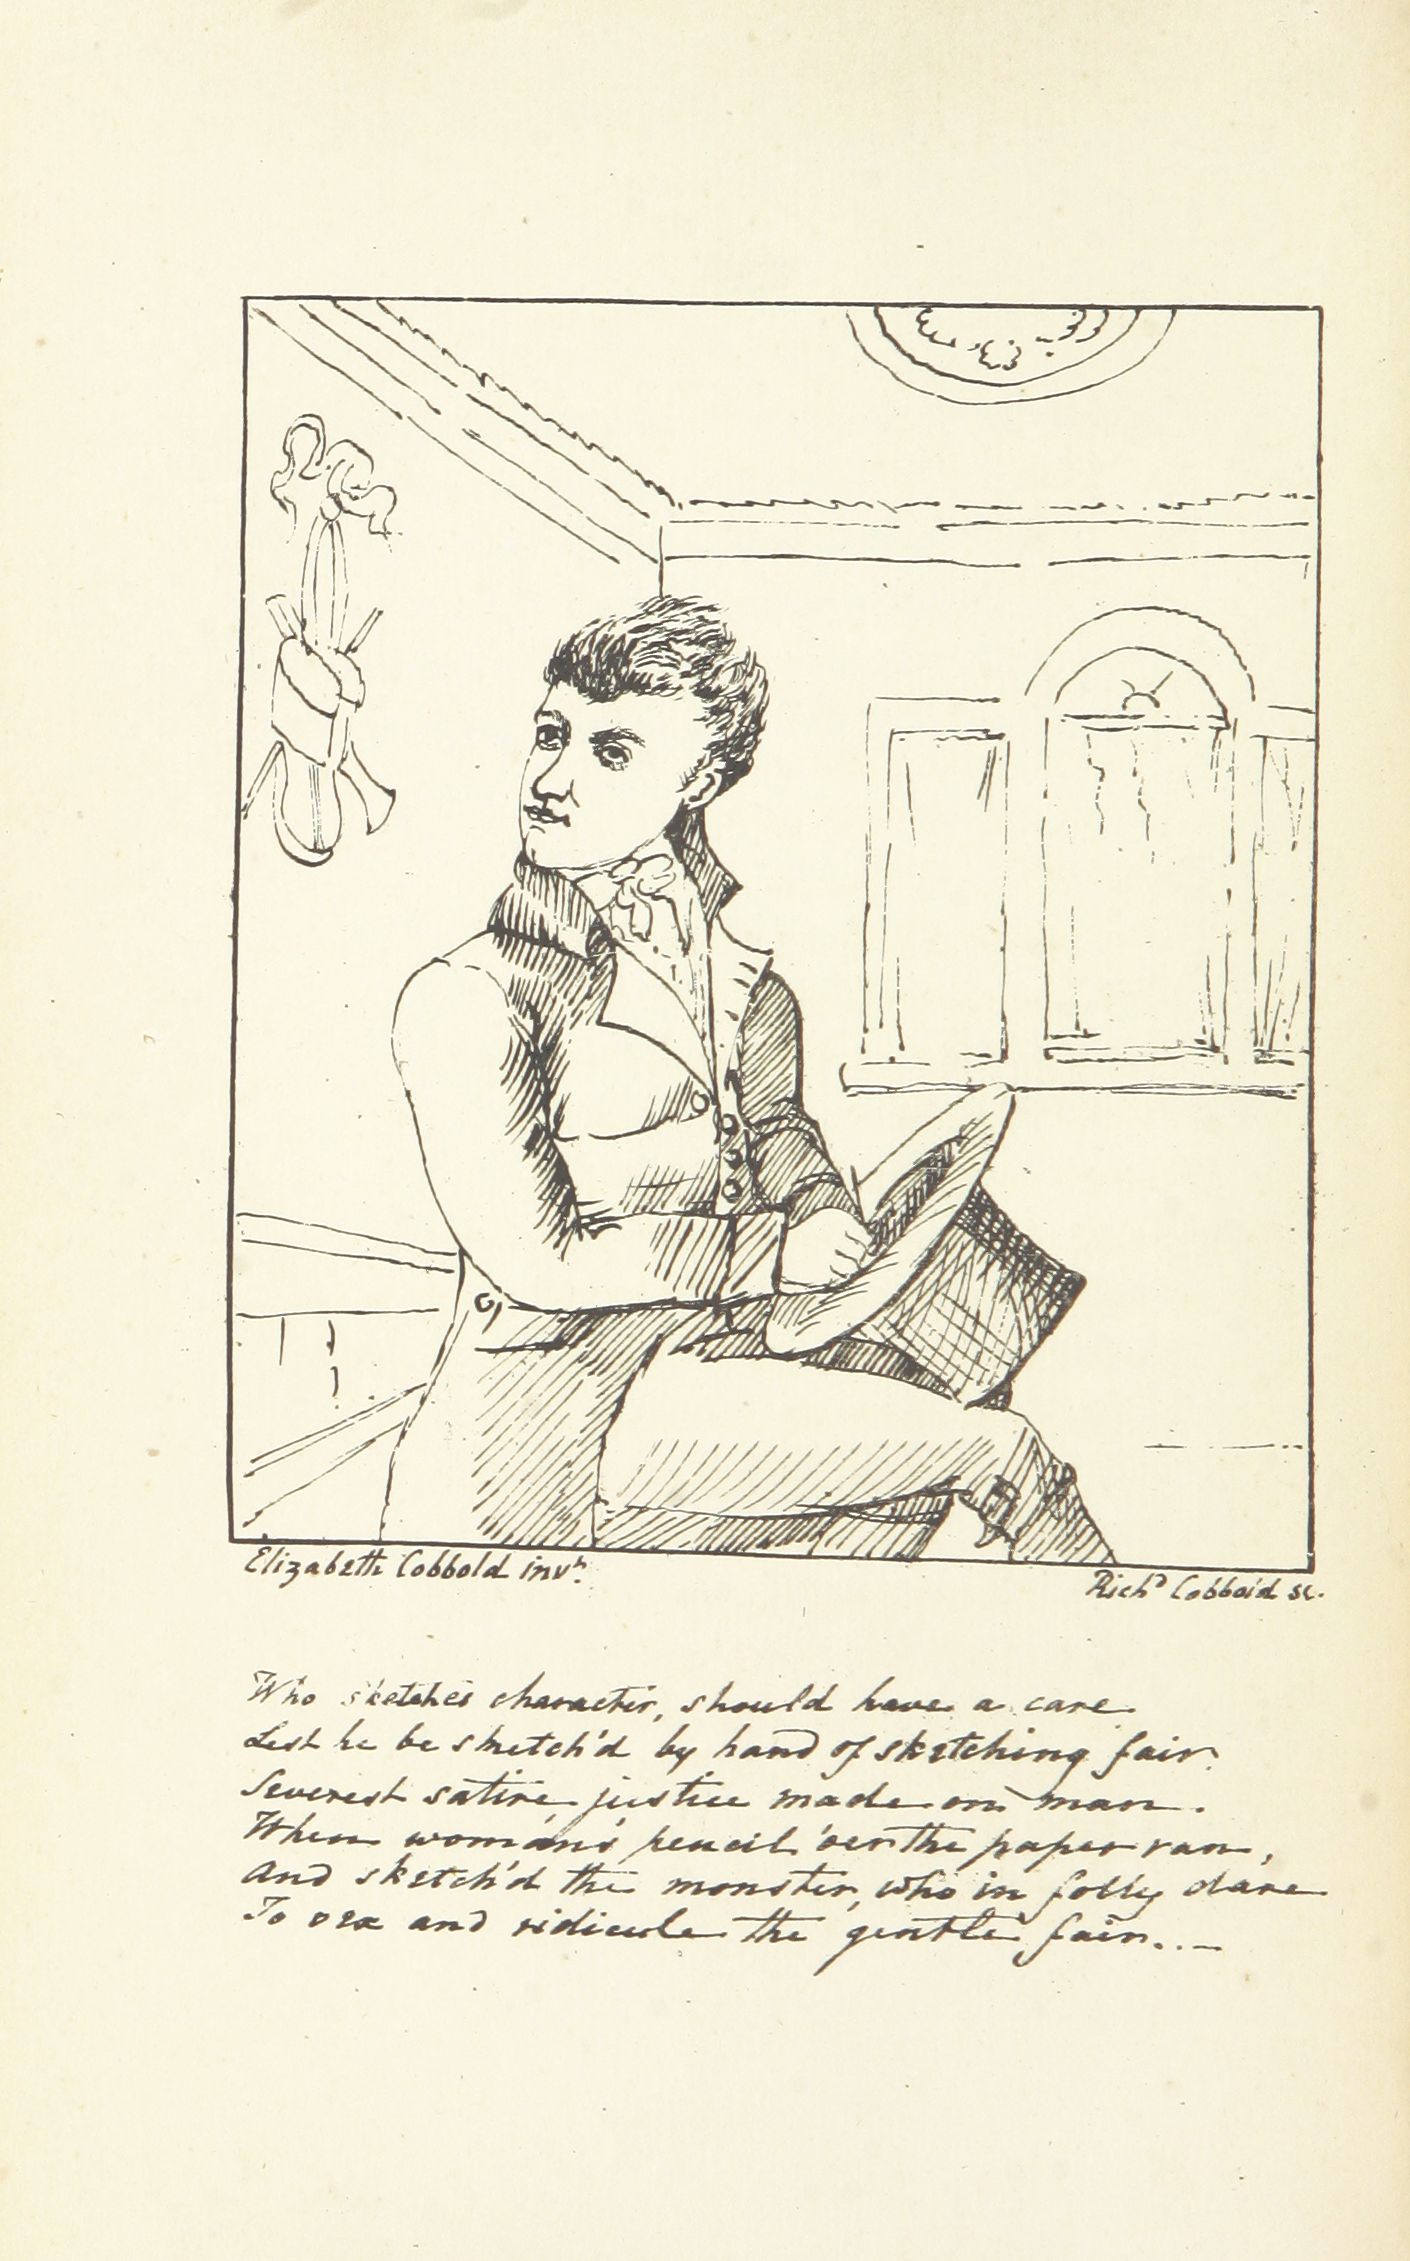 Elizabeth Cobbold invt.
Richd Cobbold sc.
Who sketches character, should have a care
Lest he be sketch'd by hand of sketching fair.
Severest satire, justice made on man.
When woman's pencil 'oer the paper ran,
And sketch'd the monster, who in folly dare
To vex and ridicule the gentle fair...